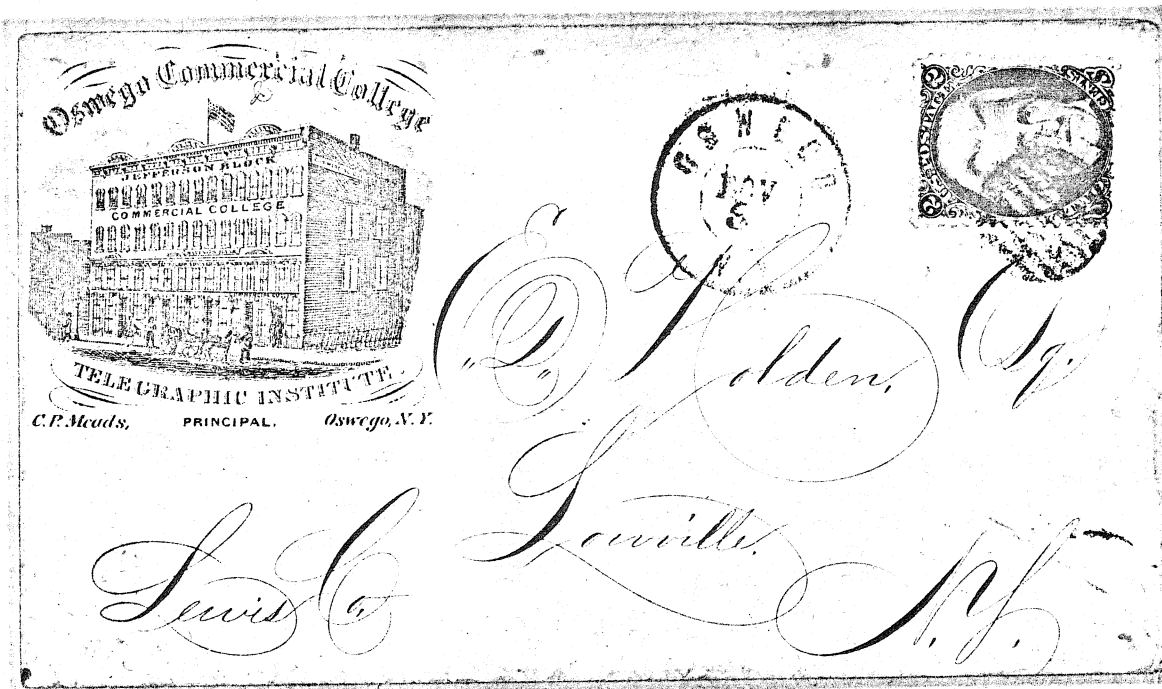 Oswego Commercial College
JEFFERSON BLOCK
COMMERCIAL COLLEGE
TELEGRAPHIC INSTITUTE.
C.P. Meads, PRINCIPAL. Oswego, N.Y.
OSWEGO
NOV
5
N
U.S. POSTAGE
2
2
Esq.
Lowville.
Lewis Co.
N.Y.